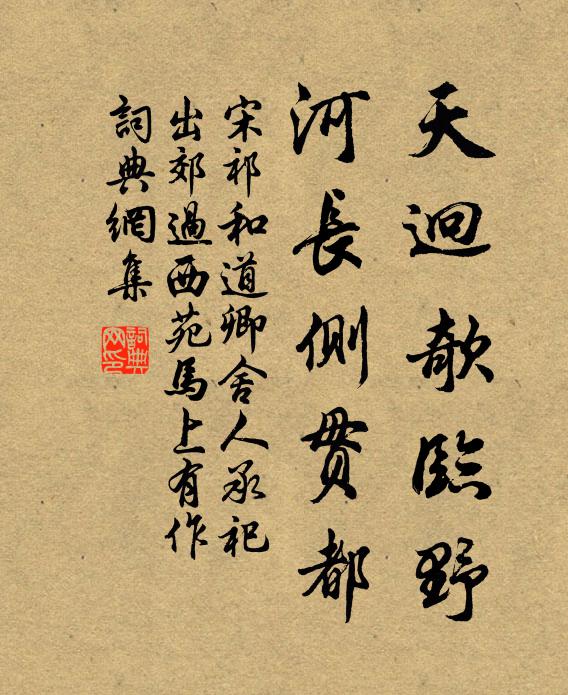 天迥欹臨野
河長側貫都
宋祁和道卿舍人承祀
出郊過西苑馬上有作
詞典網集
詞典
网印